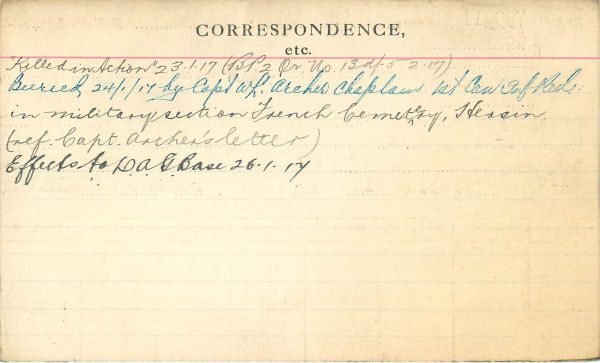 CORRESPONDENCE,
etc.
"Killed in Action" 23.1.17 (B.P.2 Or. No. 13 d/- 5-2-17)
Buried, 24/1/17 by Capt W. Archer Chaplain 1st Can Inf Bde.
in military section French Cemetery, Hersin.
(ref. Capt. Archer's letter)
Effects to D.A.G. Base 26.1.17